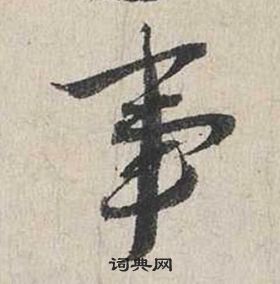 事
词典网